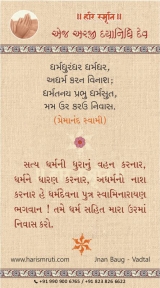 ॥ હરિ સ્મૃતિ ॥
એજ અરજી દયાનિધિ દેવ
ધર્મધુરંધર ધર્મધર,
અધર્મ કરન વિનાશ;
ધર્મતનય પ્રભુ ધર્મસુત,
મમ ઉર કરઉ નિવાસ.
(પ્રેમાનંદ સ્વામી)
સત્ય ધર્મની ધુરાનું વહન કરનાર,
ધર્મને ધારણ કરનાર, અધર્મનો નાશ
કરનાર હે ધર્મદેવના પુત્ર સ્વામિનારાયણ
ભગવાન ! તમે ધર્મ સહિત મારા ઉરમાં
નિવાસ કરો.
www.harismruti.com
Jnan Baug - Vadtal
+91 990 900 6765 / +91 823 826 6622